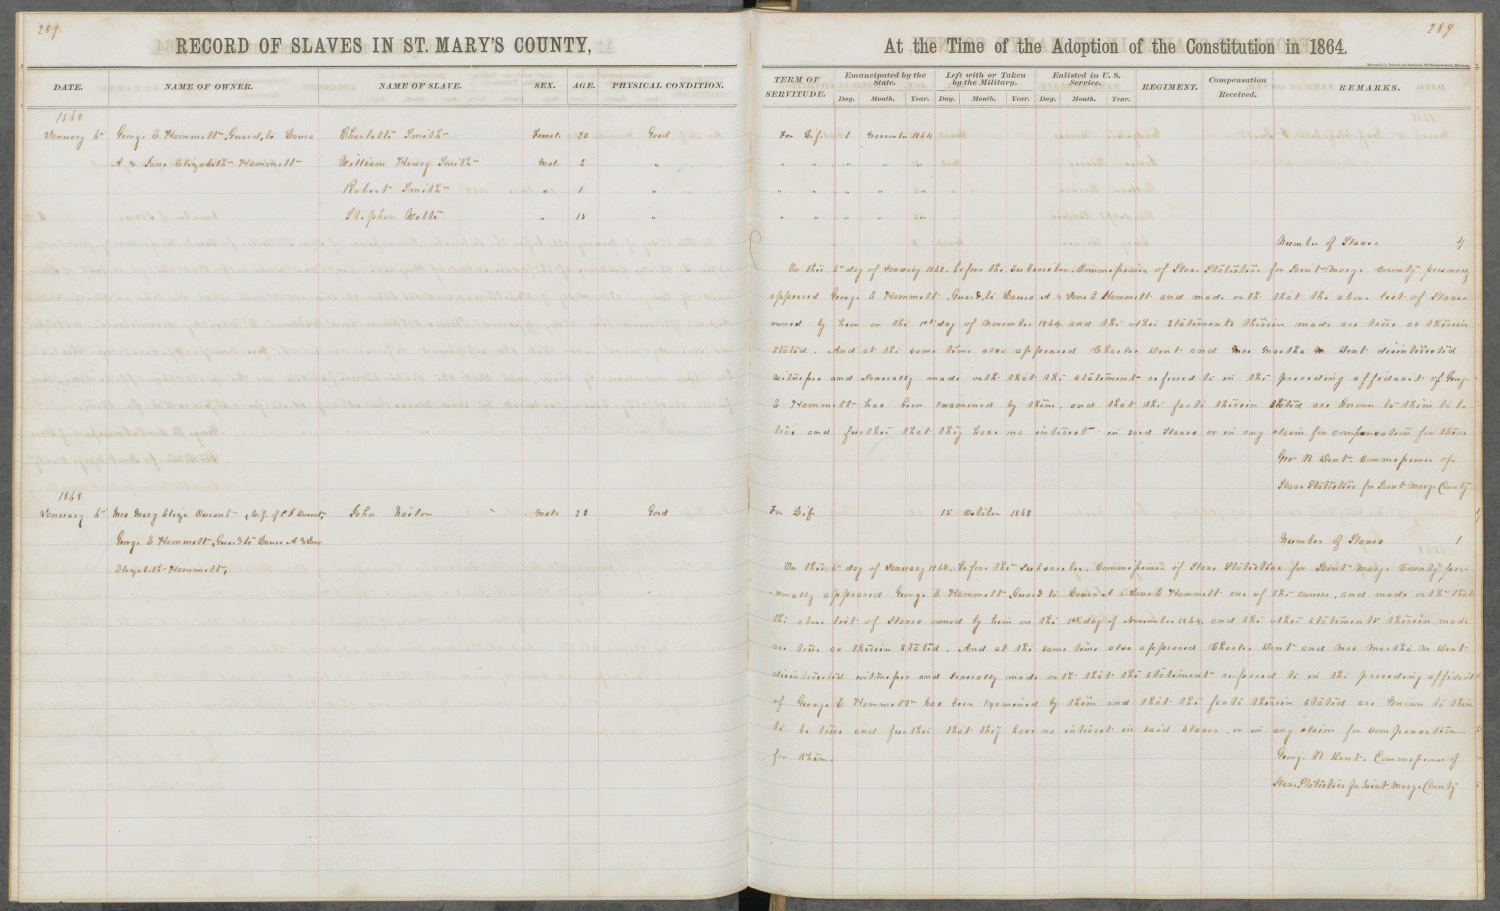 289
289
RECORD OF SLAVES IN ST. MARY'S COUNTY,
At the Time of the Adoption of the Constitution in 1864.
DATE.
NAME OF OWNER.
NAME OF SLAVE.
SEX.
AGE.
PHYSICAL CONDITION.
TERM OF SERVITUDE.
Emancipated by the State.
Day. Month. Year.
Left with or Taken by the Military.
Day. Month. Year.
Enlisted in U. S. Service.
Day. Month. Year.
REGIMENT.
Compensation Received.
REMARKS.
1868
January 6th George E Hammett, Guard, to Laura Charlotte Smith Female 20 Good For Life 1 November 1864
A & Jane Elizabeth Hammett William Henry Smith Male 2 " " " " " "
Robert Smith " 1 " " " " " "
Stephen Watts " 15 " " " " " "
Number of Slaves 4
On this 6th day of January 1868. before the subscriber, Commissioner of Slave Statistics for Saint Marys County personally
appeared George E Hammett Guard, to Laura A & Jane E Hammett and made oath that the above list of Slaves
owned by him on the 1st day of November 1864. and the other statements therein made are true as therein
stated. And at the same time also appeared Charles Dent and Mrs Martha M Dent disinterested
witnesses and severally made oath that the statement refered to in the preceding affidavit of George
E Hammett has been examined by them. and that the facts therein stated are known to them to be
true and further that they have no interest in said Slaves or in any claim for compensation for them
Geo B Dent. Commissioner of
Slave Statistics for Saint Marys County
1868
January 6th Mrs Mary Eliza Durant, Wife of C F Durant, John Nailor " Male 22 Good For Life 15 October 1862
George E Hammett, Guard to Laura A & Jane
Elizabeth Hammett,
Number of Slaves 1
On this 6th day of January 1868. before the Subscriber, Commissioner of Slave Statistics for Saint Marys County per-
-sonally appeared George E Hammett, Guard to Laura A & Jane E Hammett one of the owners, and made oath that
the above list of Slaves owned by him on the 1st day of November 1864. and the other statements therein made
are true as therein stated. And at the same time also appeared Charles Dent and Mrs Martha M Dent
disinterested witnesses and severally made oath that the statement refered to in the preceding affidavit
of George E Hammett has been examined by them and that the facts therein stated are known to them
to be true and further that they have no interest in said Slaves, or in any claim for compensation
for them.
George B Dent. Commissioner of
Slave Statistics for Saint Marys County